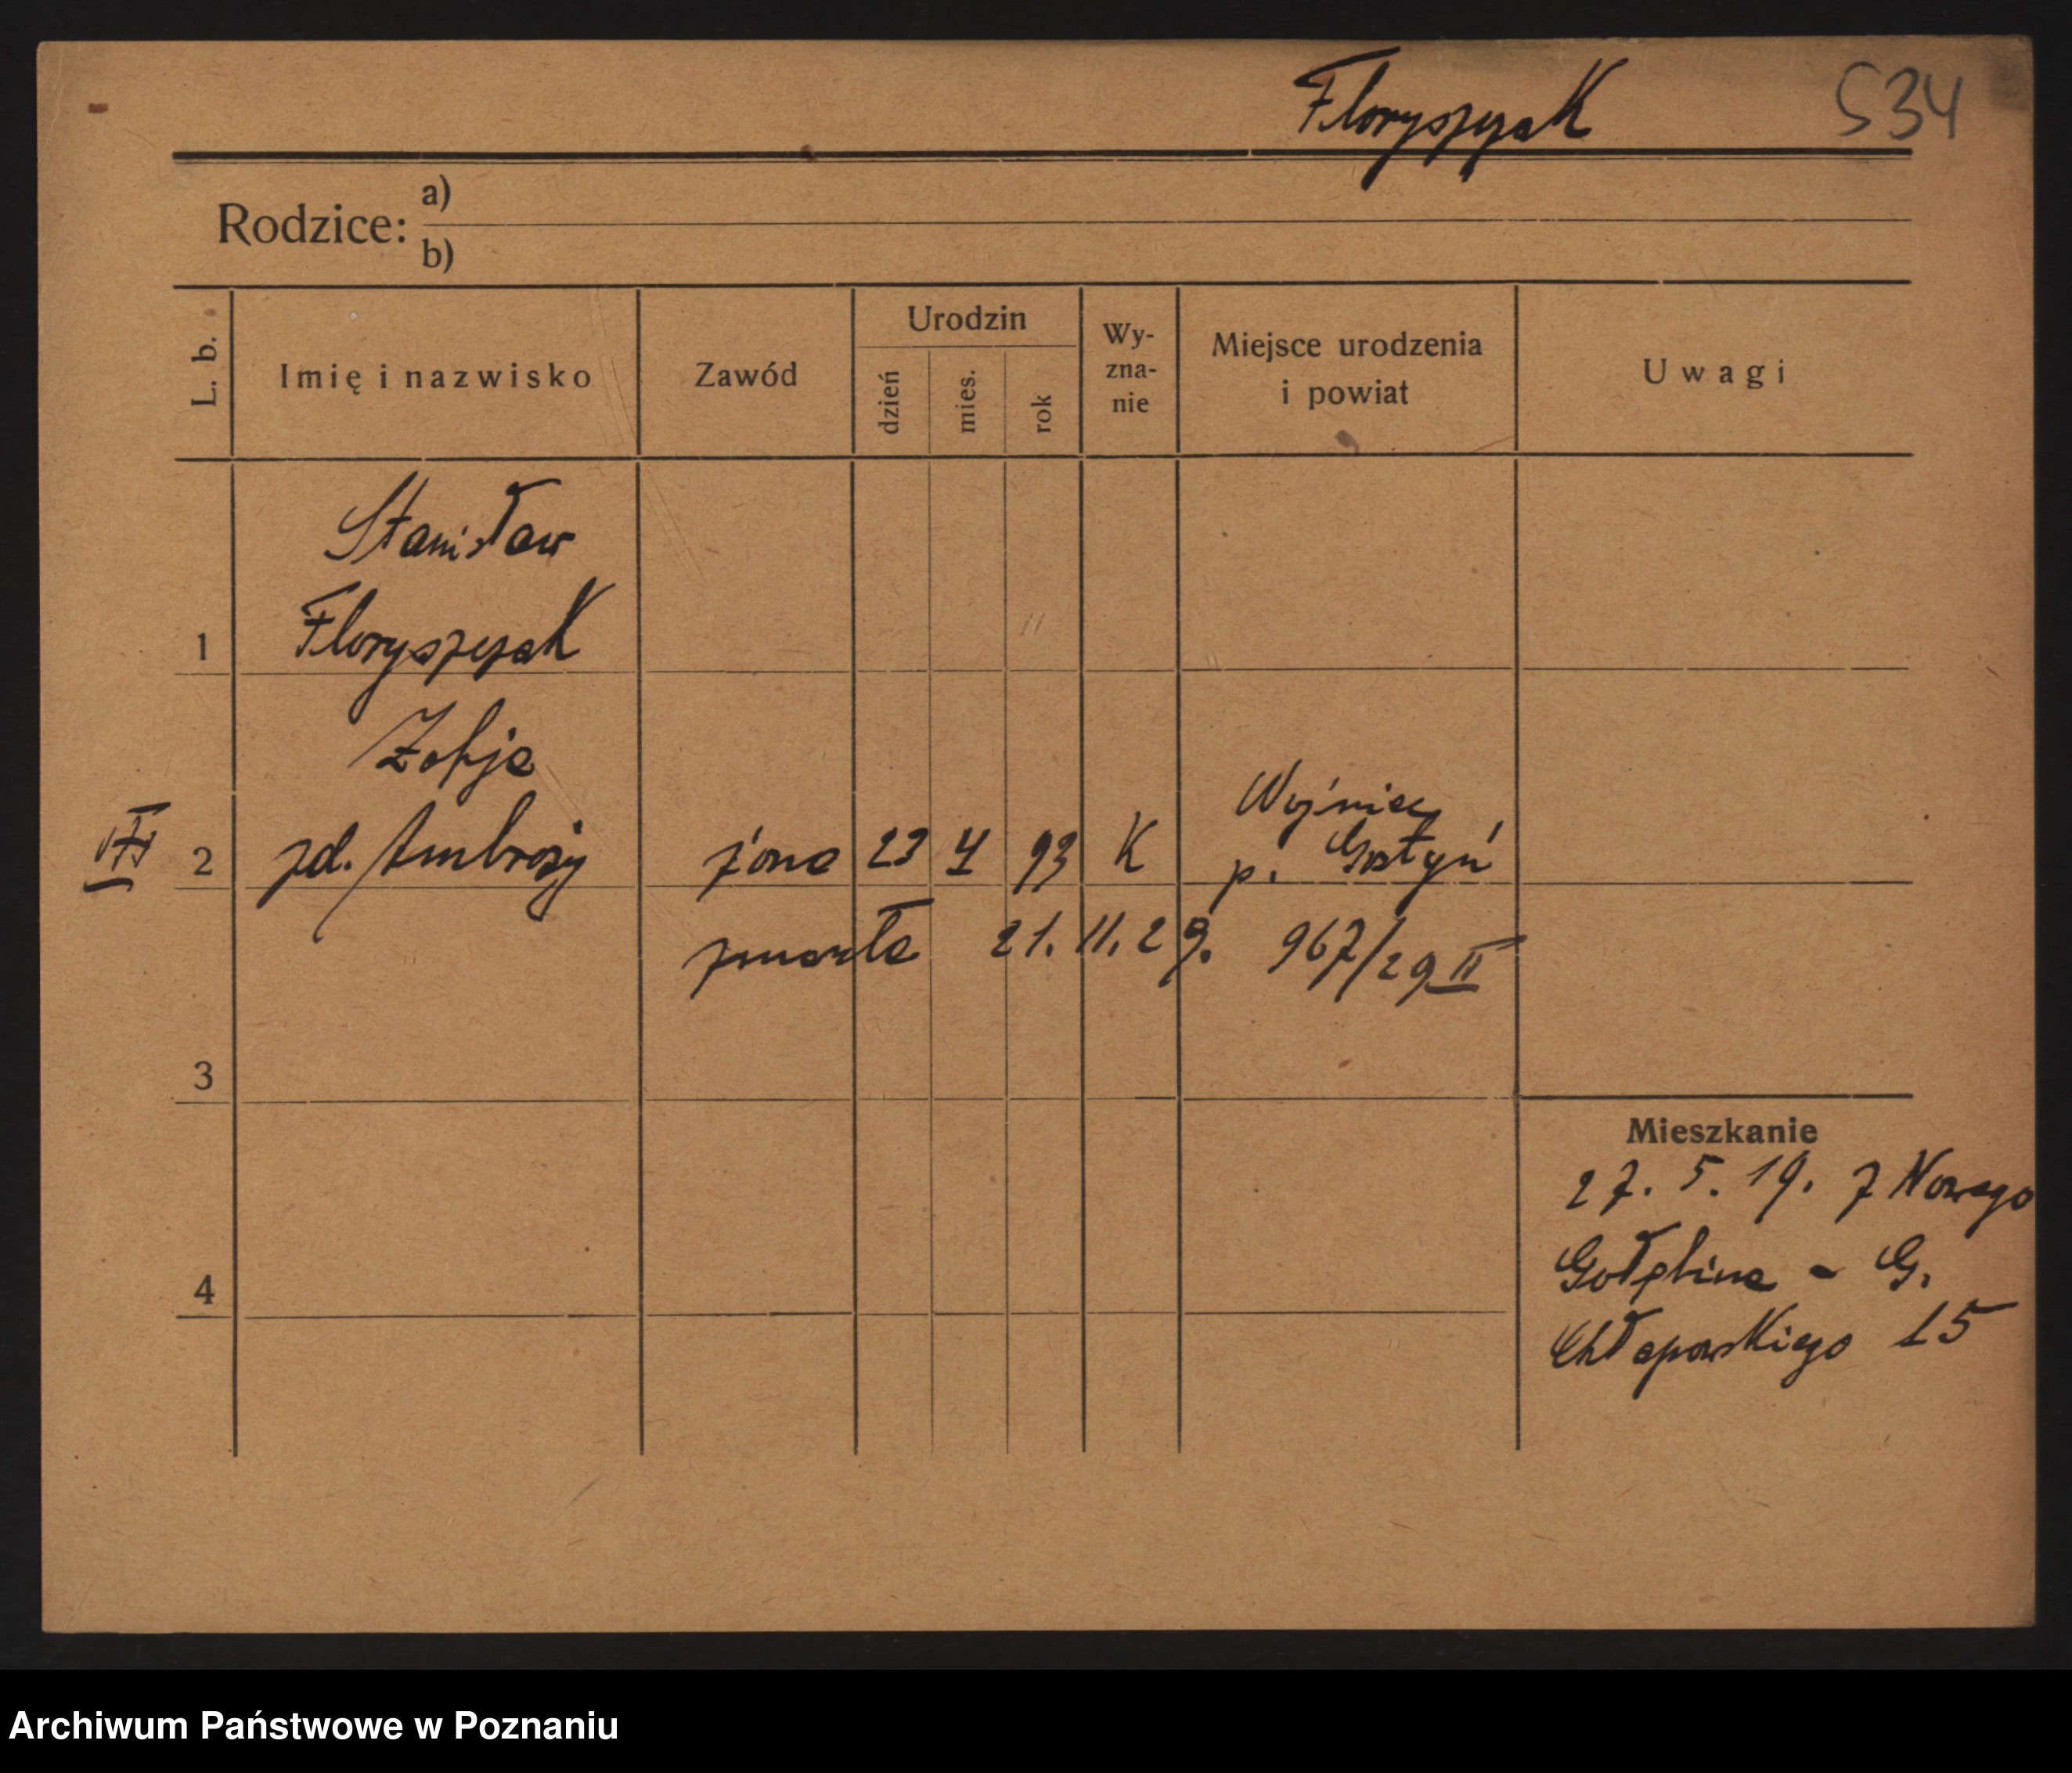 Floryszczak 534
Rodzice: a)
b)
L. b. Imię i nazwisko Zawód Urodzin dzień mies. rok Wy-zna-nie Miejsce urodzenia i powiat Uwagi
Stanisław
1 Floryszczak
Zofja
2 zd. Ambroży żona 23 4 93 K p. Gostyń
zmarła 21. 11. 29. 967/29 II
3
Mieszkanie
27. 5. 19. z Nowego
Gołębina - G.
4
Chłapowskiego 15
Archiwum Państwowe w Poznaniu